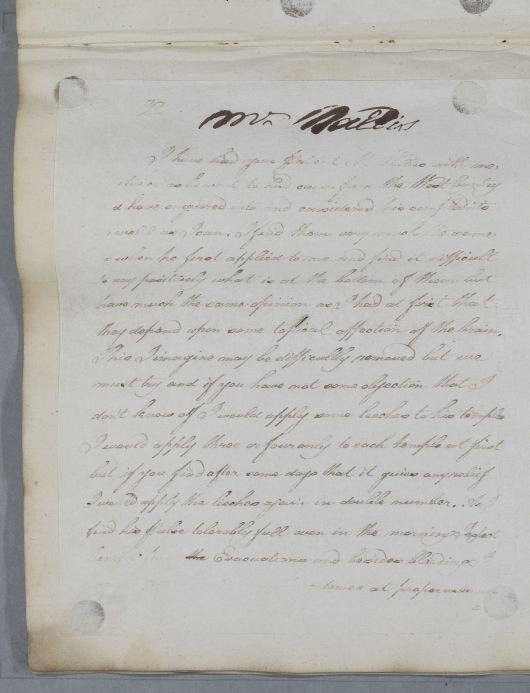 Mr Wallis
I have had your Patient Mr Wallis with me
as he went to and came from the West Country
d have enquired into and considered his complaints
as well as I can. I find them very much the same
as when he first applied to me and find it difficult
to say positively what is at the bottom of them but
have much the same opinion as I had at first that
they depend upon some topical affection of the brain.
This I imagine may be difficultly removed but we
must try and if you have not some objection that I
don't know of I would apply some leeches to his temples
I would apply three or four only to each temple at first
but if you find after some days that it gives any relief
I would apply the leeches again in double number. As I
find his Pulse tolerably full even in the morning I expect
the Evacuations and besides bleeding
times at proper